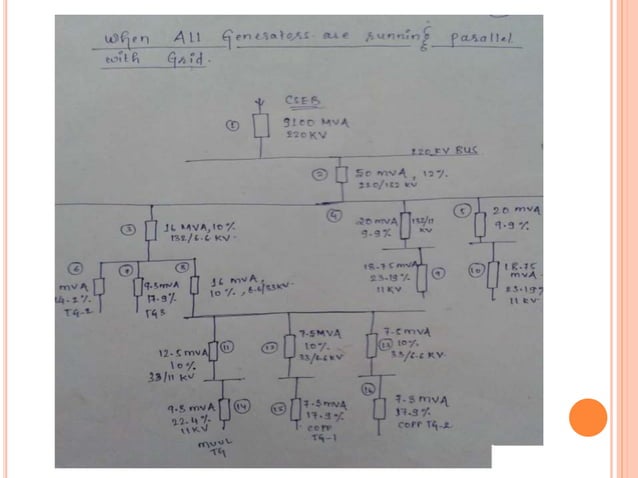 When All Generators are running parallel
&
with Grid.
CSEB
① 9100 MVA
220 KV
220 KV BUS
② 50 MVA, 12%.
220/132 KV
③ 16 MVA, 10%
132/6.6 KV.
④ 20 MVA 132/11
9.9% KV
⑤ 20 MVA
9.9%.
⑥ ⑦ ⑧
MVA
14.2%
TG-2
9.5MVA
17.9%
TG3
16 MVA,
10%., 6.6/33KV.
18.75MVA ⑨
23.19%
11KV
⑩ 18.75
MVA.
23.19%
11KV.
12.5 MVA ⑪
10%
33/11 KV
⑫ 7.5MVA
10%.
33/6.6KV
7.5 MVA
⑬ 10%.
33/6.6 KV.
9.5 MVA ⑭
22.4%
11KV
MUUL
TG
⑮ 7.5MVA
17.9%
COPP
TG-1
⑯
7.5 MVA
17.9%.
COPP TG-2